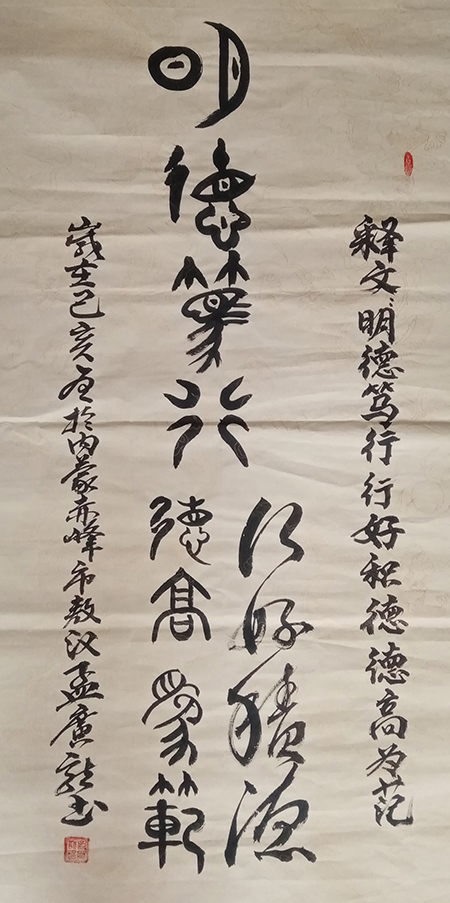 释文:明德笃行行好积德德高为范
明德篤行
行好積德
德高為範
歲在己亥於内蒙赤峰市敖汉孟廣龍书